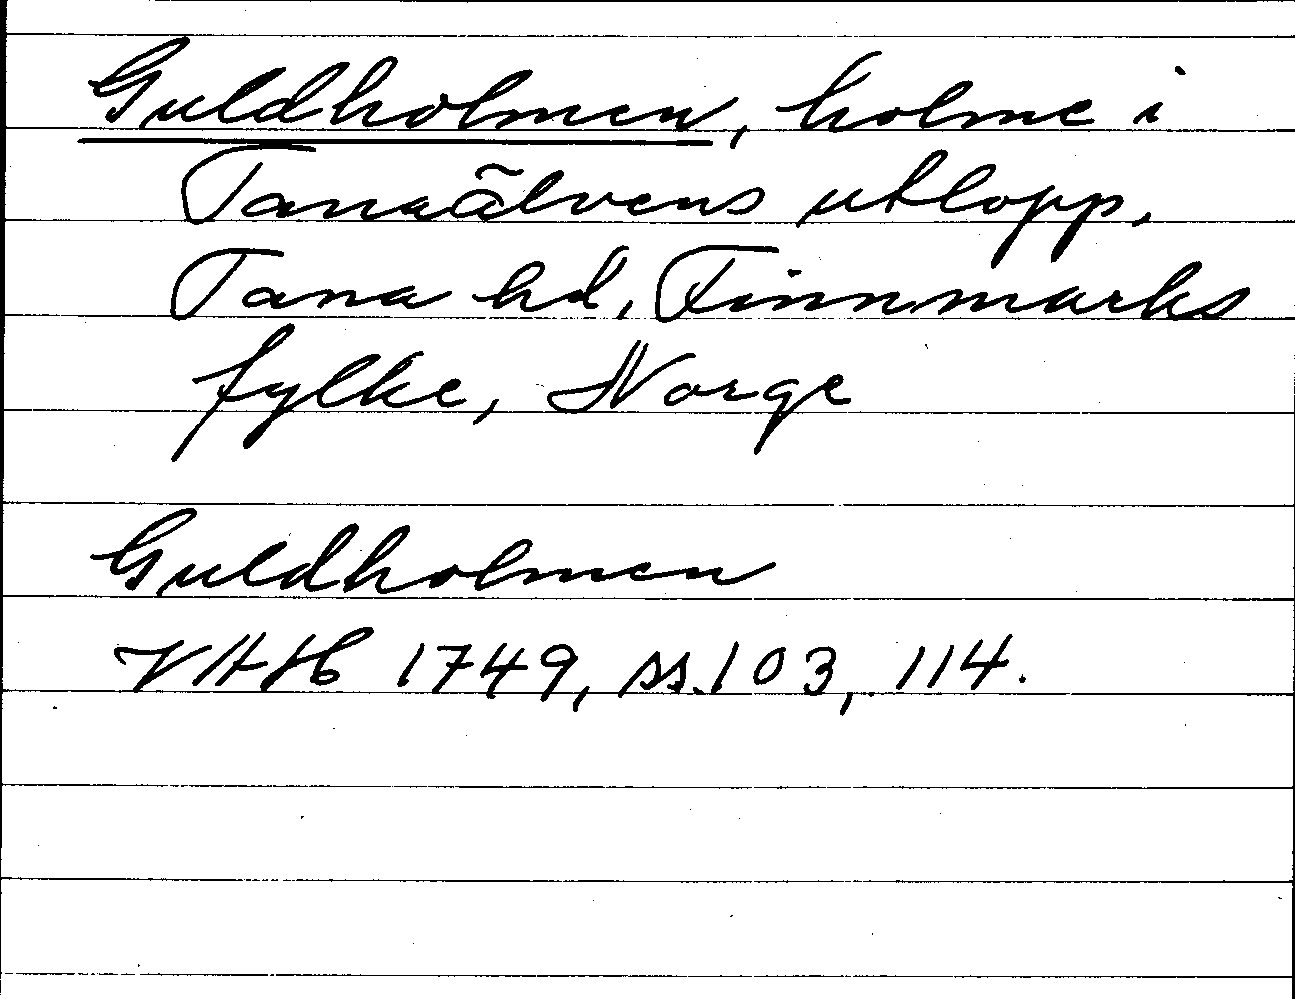 Guldholmen, holme i
Tanaälvens utlopp,
Tana hd, Finnmarks
fylke, Norge
Guldholmen
VHH 1749, ss. 103, 114.